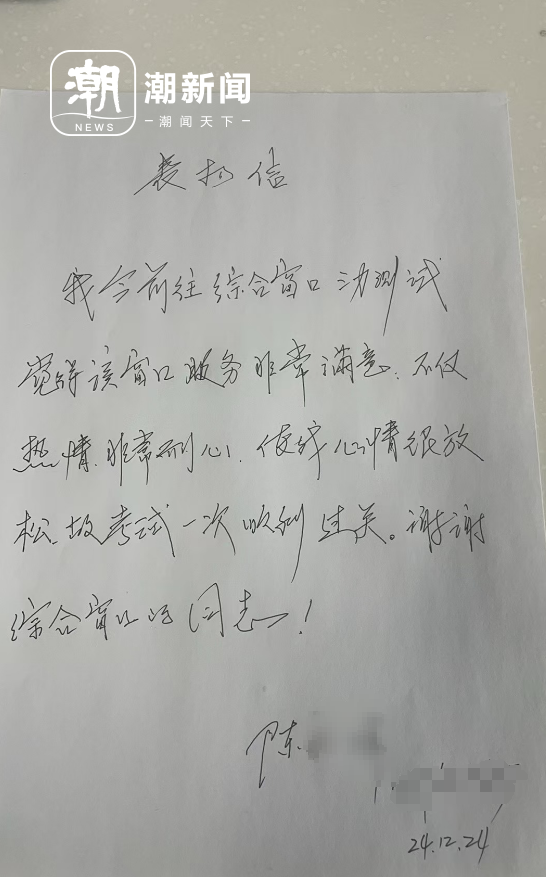 潮新闻
潮
NEWS
潮闻天下
表扬信
我今前往综合窗口 测试
觉得该窗口服务非常满意.不仅
热情.非常耐心.使我心情很放
松.故考试一次顺利过关。谢谢
综合窗口的同志!
陈
24.12.24